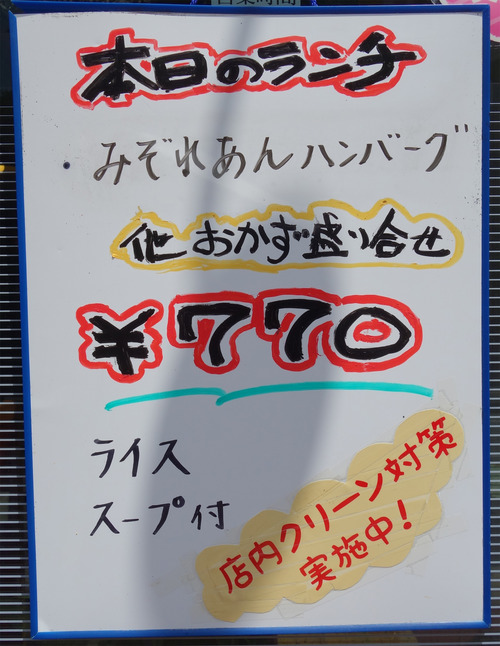 本日のランチ
みぞれあんハンバーグ
他 おかず盛り合せ
¥770
ライス
スープ付
店内クリーン対策
実施中!